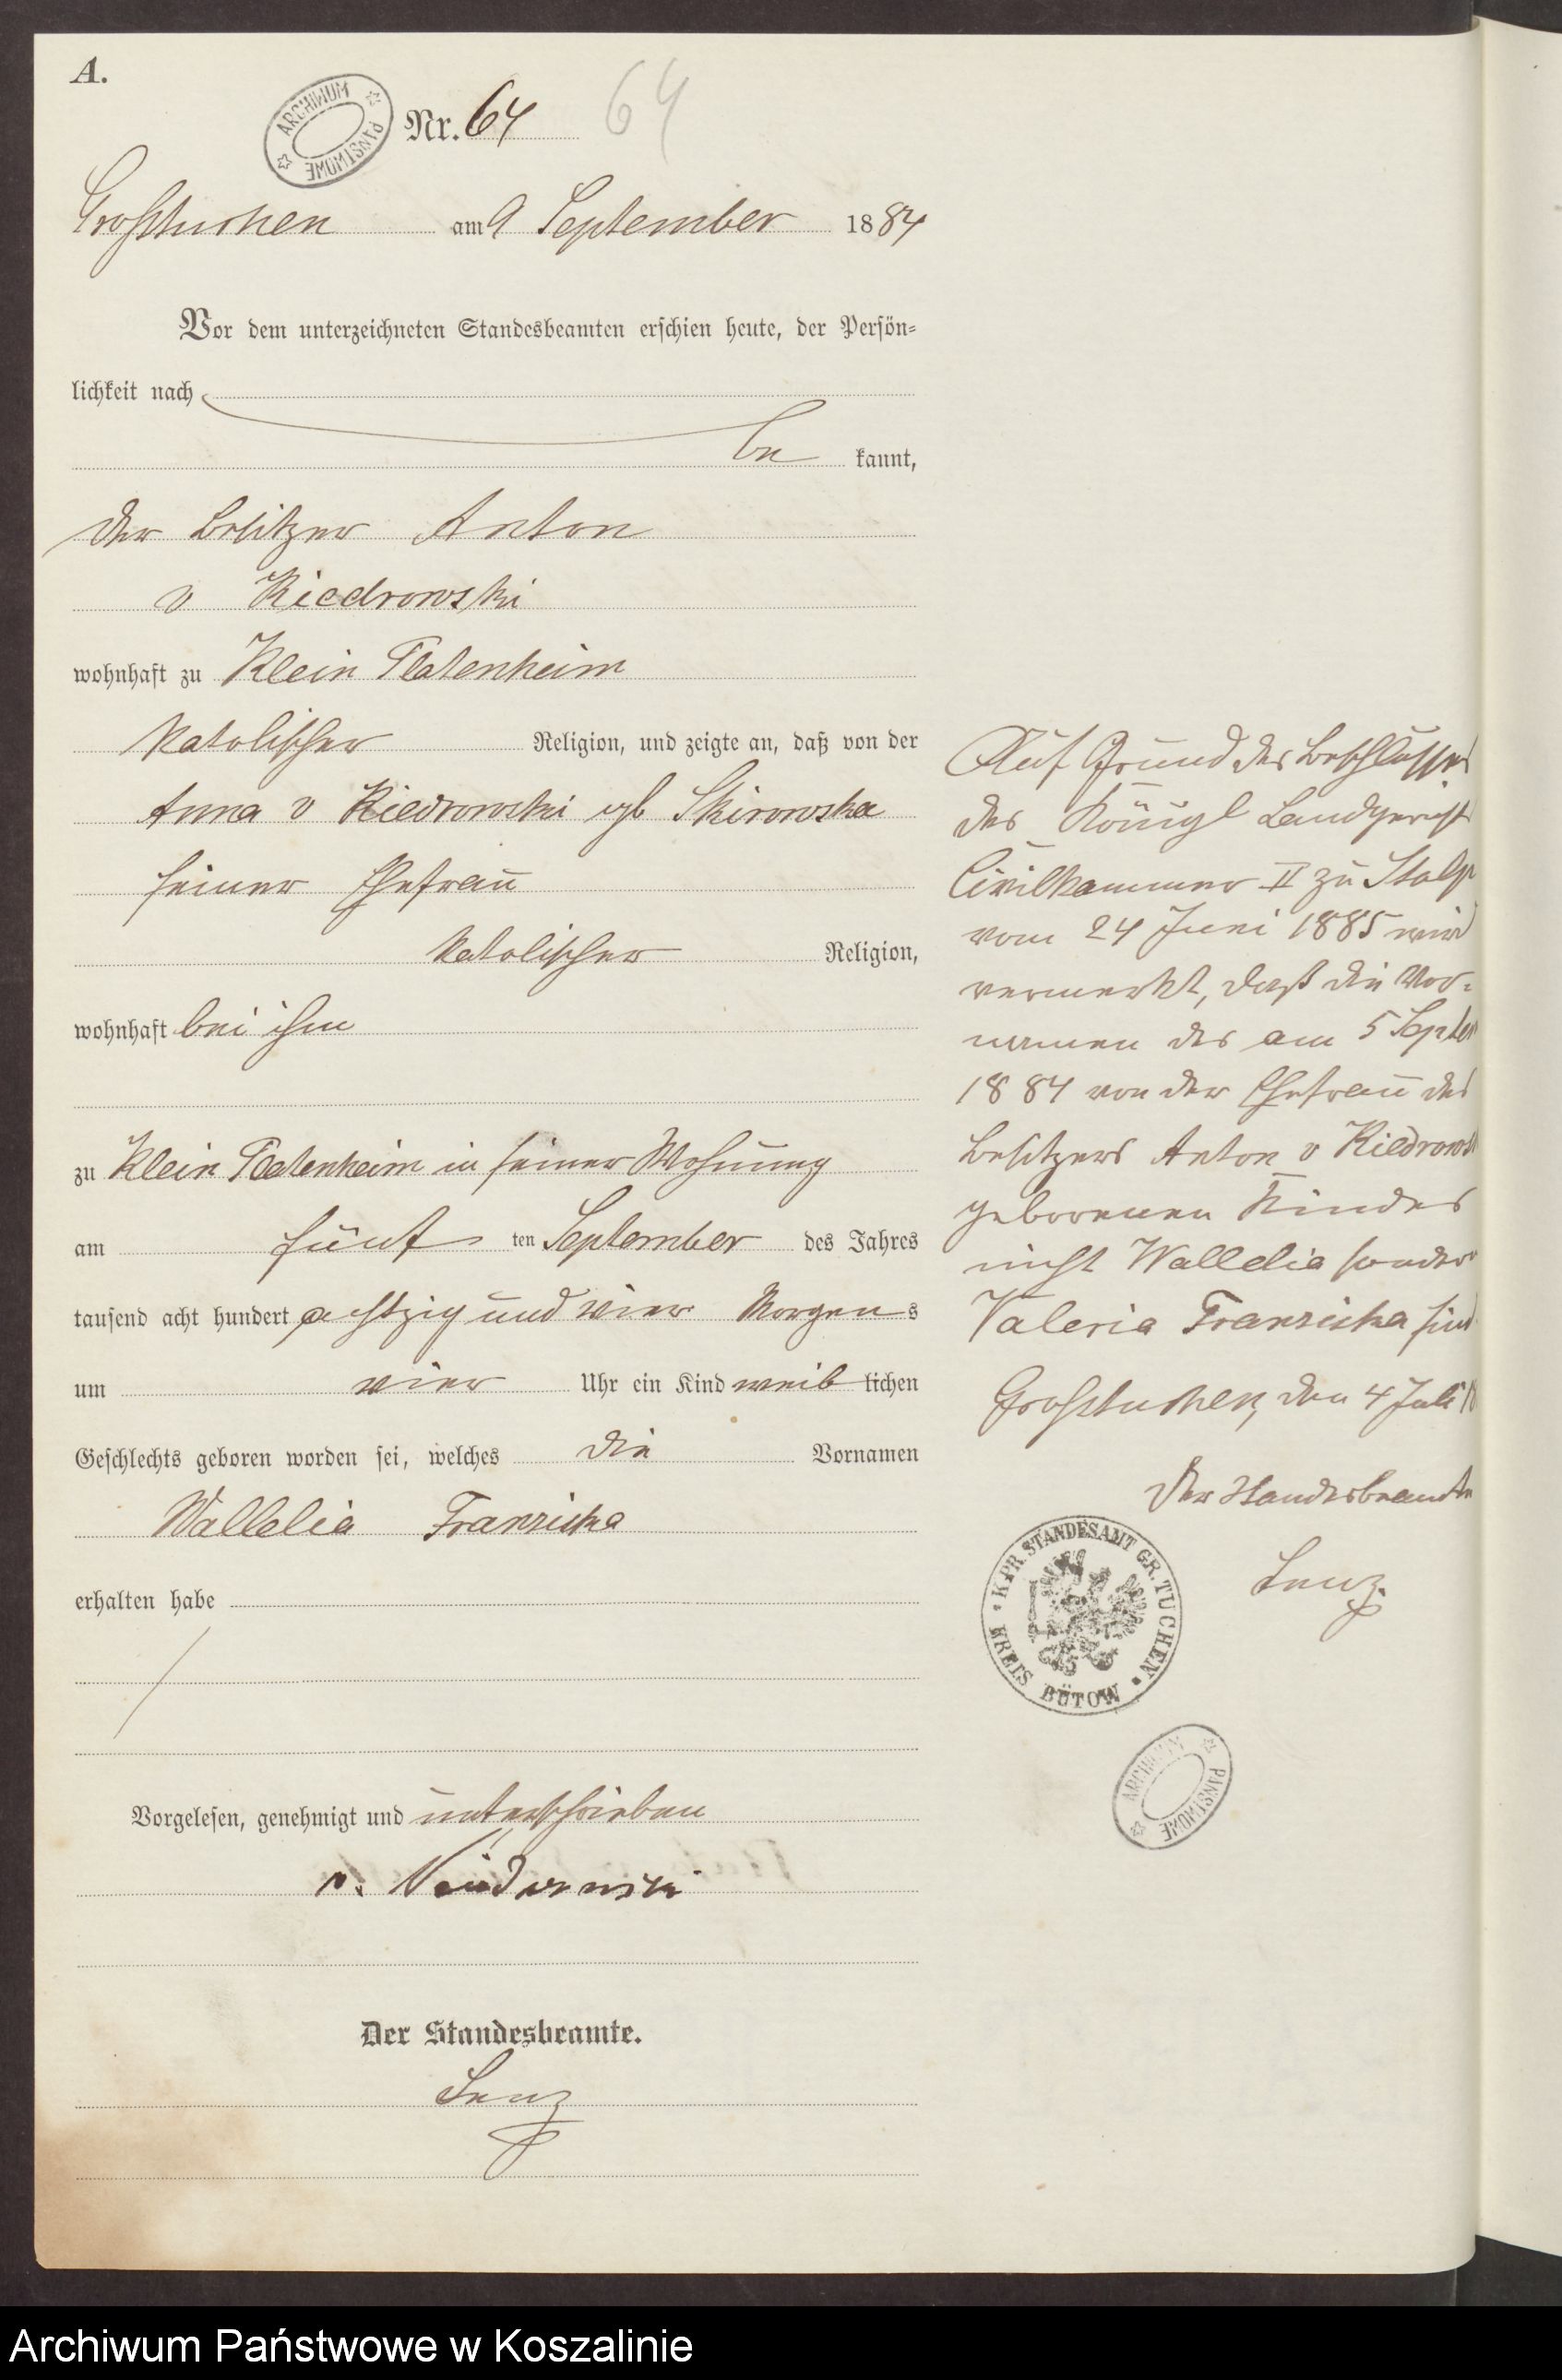 A.
ARCHIWUM PAŃSTWOWE
Nr. 64 64
Großtuchen am 9 September 1884
Vor dem unterzeichneten Standesbeamten erschien heute, der Persön-
lichkeit nach
be kannt,
der Besitzer Anton
v Kiedrowski
wohnhaft zu Klein Platenheim
katolischer Religion, und zeigte an, daß von der
Anna v Kiedrowski geb Skirowska
seiner Ehefrau
katolischer Religion,
wohnhaft bei ihm
zu Klein Platenheim in seiner Wohnung
am fünf ten September des Jahres
tausend acht hundert achtzig und vier Morgens
um vier Uhr ein Kind weib lichen
Geschlechts geboren worden sei, welches die Vornamen
Wallelia Franziska
erhalten habe
Vorgelesen, genehmigt und unterschrieben
v. Kiedrowski
Der Standesbeamte.
Lenz
Auf Grund des Beschlusses
des Königl Landgerichts
Civilkammer II zu Stolp
vom 24 Juni 1885 wird
vermerkt, daß die Vor-
namen des am 5 Septem
1884 von der Ehefrau des
Besitzers Anton v Kiedrowski
geborenen Kindes
nicht Wallelia sondern
Valeria Franziska sind
Großtuchen, den 4 Juli 18
Der Standesbeamte
Lenz.
K. PR. STANDESAMT GR. TUCHEN
KREIS BÜTOW
ARCHIWUM PAŃSTWOWE
Archiwum Państwowe w Koszalinie